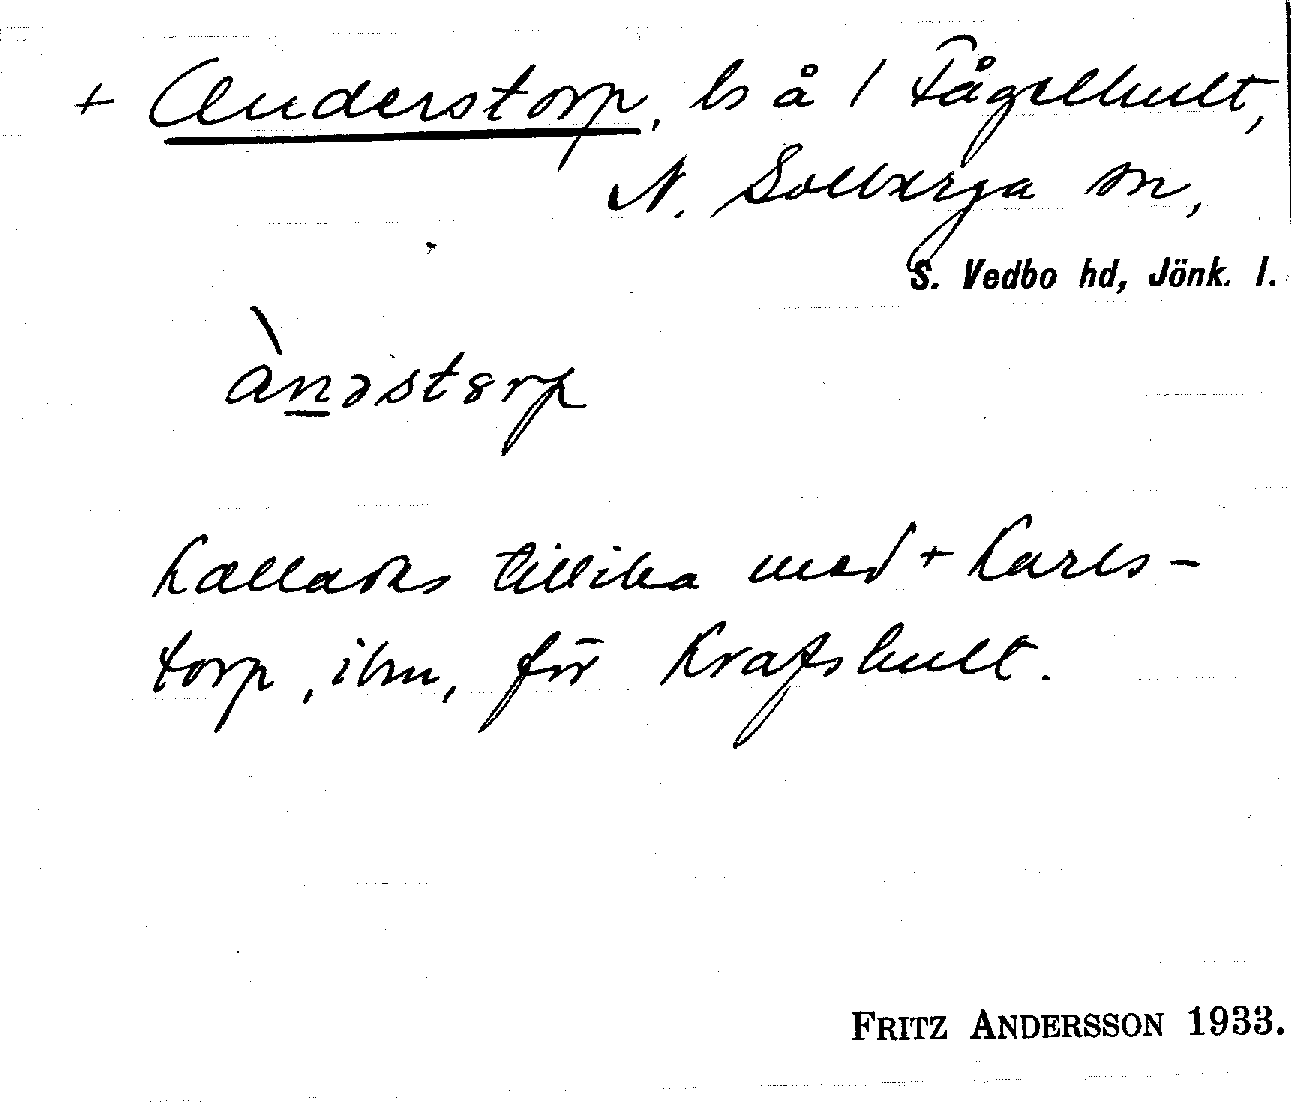 + Anderstorp, ls å 1 Fågelhult,
N. Solberga sn,
S. Vedbo hd, Jönk. l.
ànəstərp
kallades tillika med + Karls-
torp, ibm, för Krafshult.
FRITZ ANDERSSON 1933.